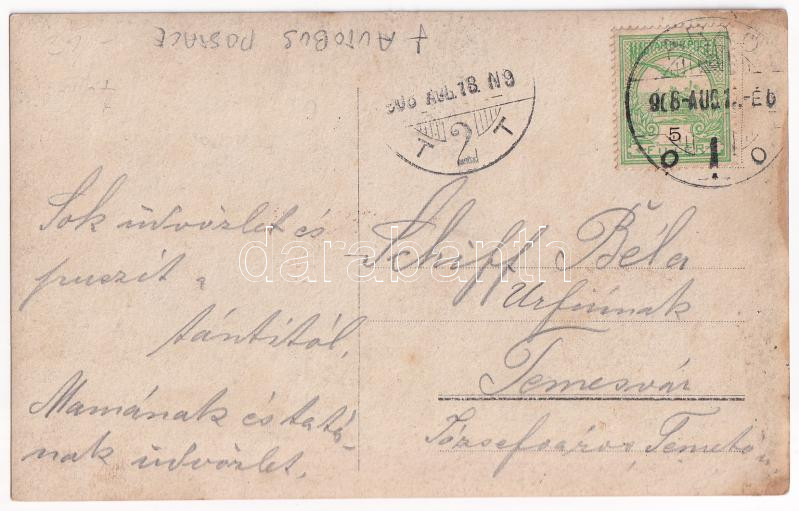 + AUTOBUS POSTACE
908 AUG. 18. N9
T 2 T
MAGYAR KIR. POSTA
5
FILLER
908-AUG.1 .-É6
O 1 O
Sok üdvözlet és
puszit a
tántitól,
Mamának és tatá-
nak üdvözlet.
Schiff Béla
Urfiúnak
Temesvár
Józsefváros,
darabanth.com